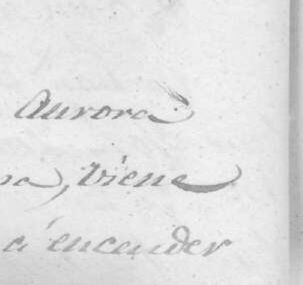 Aurora
na, viene
á encender